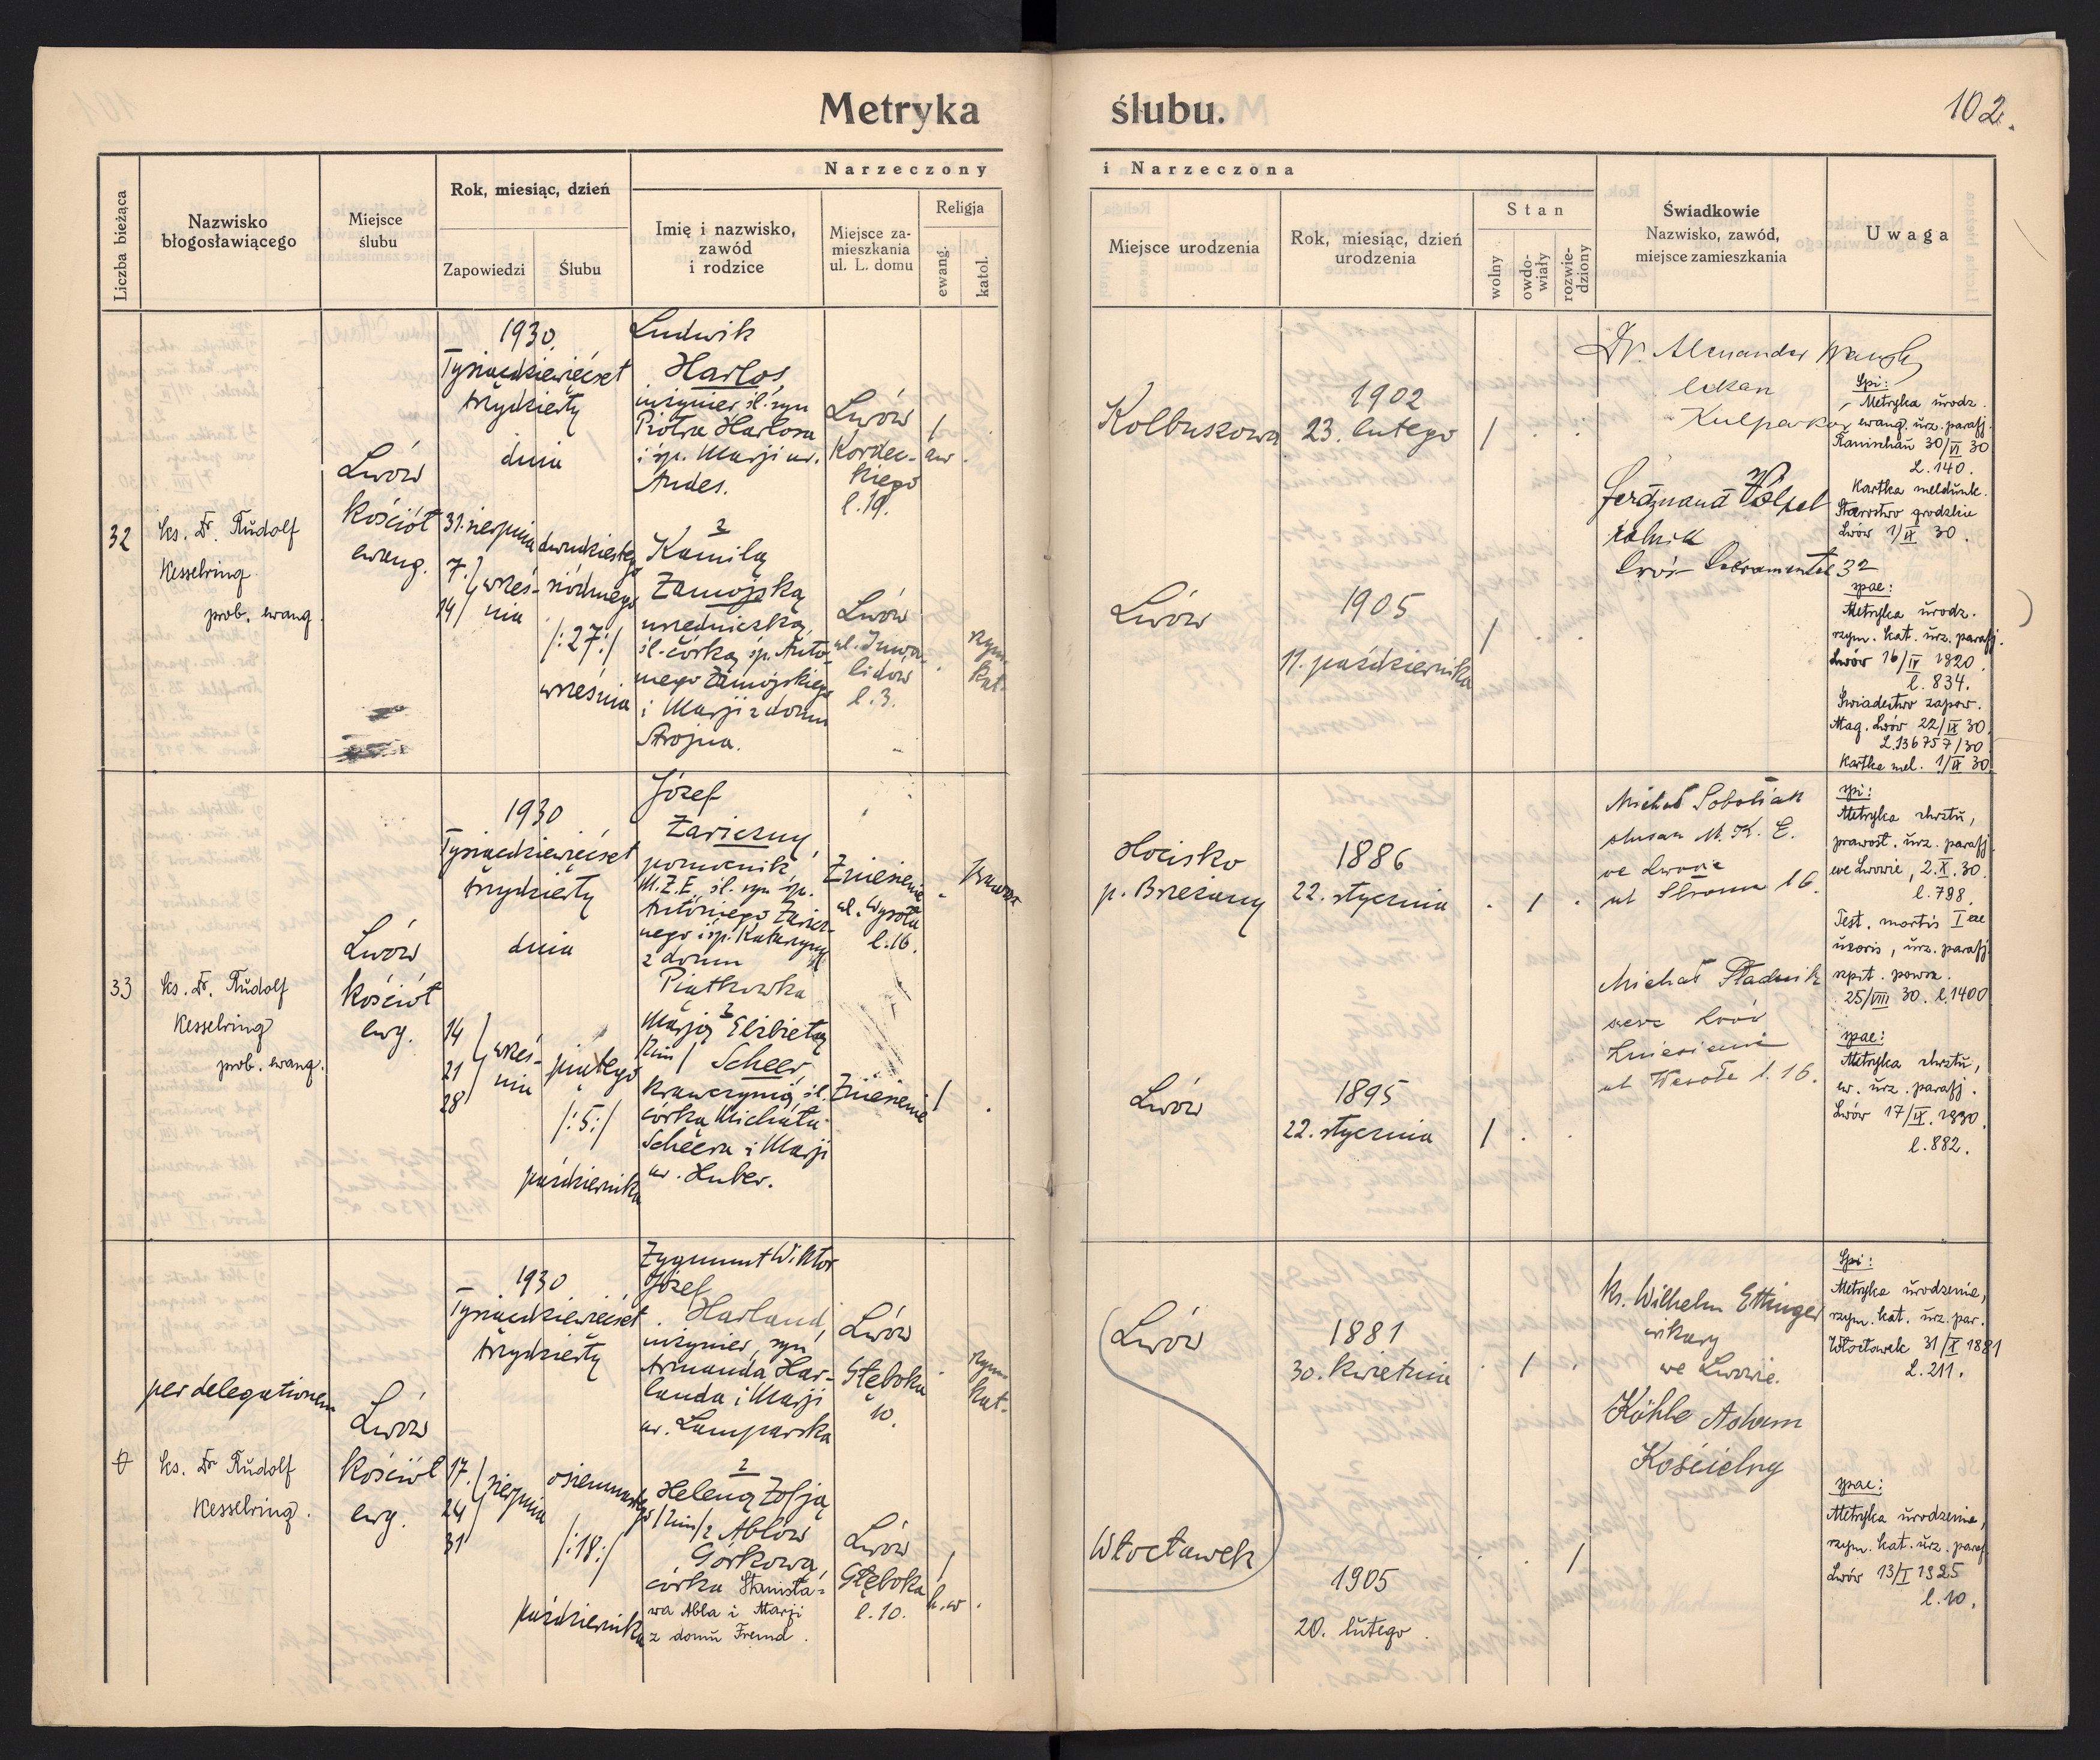 Metryka ślubu.
102.
Liczba bieżąca
Nazwisko
błogosławiącego
Miejsce
ślubu
Rok, miesiąc, dzień
Zapowiedzi
Ślubu
Narzeczony
Imię i nazwisko,
zawód
i rodzice
Miejsce za-
mieszkania
ul. L. domu
Religja
ewang.
katol.
i Narzeczona
Miejsce urodzenia
Rok, miesiąc, dzień
urodzenia
Stan
wolny
owdo-
wiały
rozwie-
dziony
Świadkowie
Nazwisko, zawód,
miejsce zamieszkania
Uwaga
32
ks. Dr. Rudolf
Kesselring
prob. ewang.
Lwów
kościół
ewang.
1930.
Tysiącdziewięćset
trzydziesty
dnia
31. sierpnia
7.
14
wrześ-
nia
dwudziestego
siódmego
/:27:/
września
Ludwik
Harlos,
inżynier, śl. syn
Piotra Harlosa
i śp. Marji ur.
Andes.
z
Kamilą
Zamojską
urzedniczką,
śl. córką śp. Anto-
niego Zamojskiego
i Marji z domu
Strojna.
Lwów
Kordec-
kiego
l. 19.
Lwów
ul. Inwa-
lidów
l. 3.
/
aw.
rzym.
kat.
Kolbuszowa
1902
23. lutego
/
Lwów
1905
11. października
/
Dr. Alexander
lekarz
Kulparków
Ferdynand Völpel
rolnik
Lwów Sakramentek 32
Spi:
Metryka urodz.
ewang. urz. parafj.
Ranischau 30/VI 30
L. 140.
Kartka meldunk.
Starostwo grodzkie
Lwów 1/IX 30.
spae:
Metryka urodz.
rzym. kat. urz. parafj.
Lwów 16/IV 1920.
l. 834.
Świadectwo zapow.
Mag. Lwów 22/IX 30.
L. 136757/30
Kartka mel. 1/IX 30.
33
ks. Dr. Rudolf
Kesselring
prob. ewang.
Lwów
kościół
ewg.
1930
Tysiącdziewięćset
trzydziesty
dnia
14
21
28
wrześ-
nia
piątego
/:5:/
października
Józef
Zariczny,
pomocnik
M.Z.E., śl. syn śp.
Antoniego Zaricz-
nego i śp. Katarzyny
z domu
Piątkowska
z
Marją Elżbietą
/2im/ Scheer,
krawczynią, śl.
córką Michała
Scheera i Marji
ur. Huber.
Zniesienie
ul. Wysoka
l. 16.
Zniesienie
/
Hocisko
p. Brzeżany
1886
22. stycznia
/
Lwów
1895
22. stycznia
/
Michał Soboliak
ślusarz M. K. E.
we Lwowie
ul Stroma l 6.
Michał
Lwów
Zniesienie
ul Wesoła l. 16.
spi:
Metryka chrztu,
prawosł. urz. parafj.
we Lwowie, 2.X.30.
l. 788.
Test. mortis I ae
uxoris, urz. parafj.
szpit. powsz.
25/VIII 30. l. 1400
spae:
Metryka chrztu,
ew. urz. parafj.
Lwów 17/IX. 1930.
l. 882.
0
per delegationem
ks. Dr Rudolf
Kesselring.
Lwów
kościół
ewg.
1930
Tysiącdziewięćset
trzydziesty
17.
24
31
sierpnia
osiemnastego
/:18:/
października
Zygmunt Wiktor
Józef
Harland,
inżynier, syn
Armanda Har-
landa i Marji
ur. Lamparska
z
Heleną Zofją
/2im/ z Ablów
Górkową,
córka Stanisła-
wa Abla i Marji
z domu Fremd.
Lwów
Głęboka
10.
Lwów
Głęboka
l. 10.
rzym.
kat.
/
a.w.
Lwów
1881
30. kwietnia
/
Włocławek
1905
20. lutego.
/
ks. Wilhelm Ettinger
wikary
we Lwowie.
Köhle Adam
Kościelny
Spi:
Metryka urodzenia,
rzym. kat. urz. par.
Włocławek 31/X 1881
L. 211.
spae:
Metryka urodzenia,
rzym. kat. urz. paraf.
Lwów 13/I 1925
l. 10.